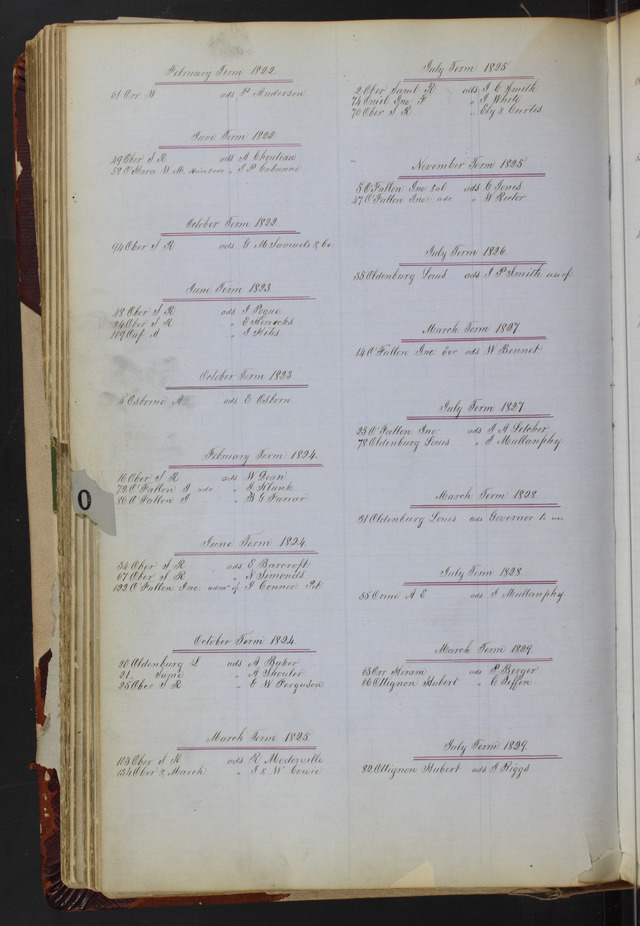 February Term 1822
51 Orr W ads P Anderson
June Term 1822
49 Ober S R ads A Chouteau
52 O'Hara W M " J P Cabanne
October Term 1822
94 Ober S R ads G McSamuels & Co
June Term 1823
18 Ober S R ads J Pogue
24 Ober S R " E Horrocks
169 A " J Hiles
October Term 1823
5 Osborne A ads E Osborn
February Term 1824
16 Ober S R ads W Dean
79 O'Fallon J adr " A Klunk
80 O'Fallon J " B G Farrar
O
June Term 1824
34 Ober S R ads E Barcroft
67 Ober S R " N Simonds
122 O'Fallon Jno admr of J Connor Pet
October Term 1824
20 Oldenburg L ads A Byker
21 Same " A Shouler
25 Ober S R " E W Ferguson
March Term 1825
103 Ober S R ads R Moderville
134 Ober & March " J & W Cowie
July Term 1825
2 Ober Saml R ads J C Smith
74 Jno F " J White
70 Ober S R " Ely & Curtis
November Term 1825
5 O'Fallon Jno Col ads G Jones
47 O'Fallon Jno adr " W Rector
July Term 1826
35 Oldenburg Louis ads J P Smith use of
March Term 1827
14 O'Fallon Jno Exr ads W Bennet
July Term 1827
25 O'Fallon Jno ads J A Letcher
78 Oldenburg Louis " J Mullanphy
March Term 1828
31 Oldenburg Louis ads Governor to use
July Term 1828
55 Orme A E ads J Mullanphy
March Term 1829
65 Orr Hiram ads P Berger
66 Ottignon Hubert " C Tiffin
July Term 1829
82 Ottignon Hubert ads J Riggs